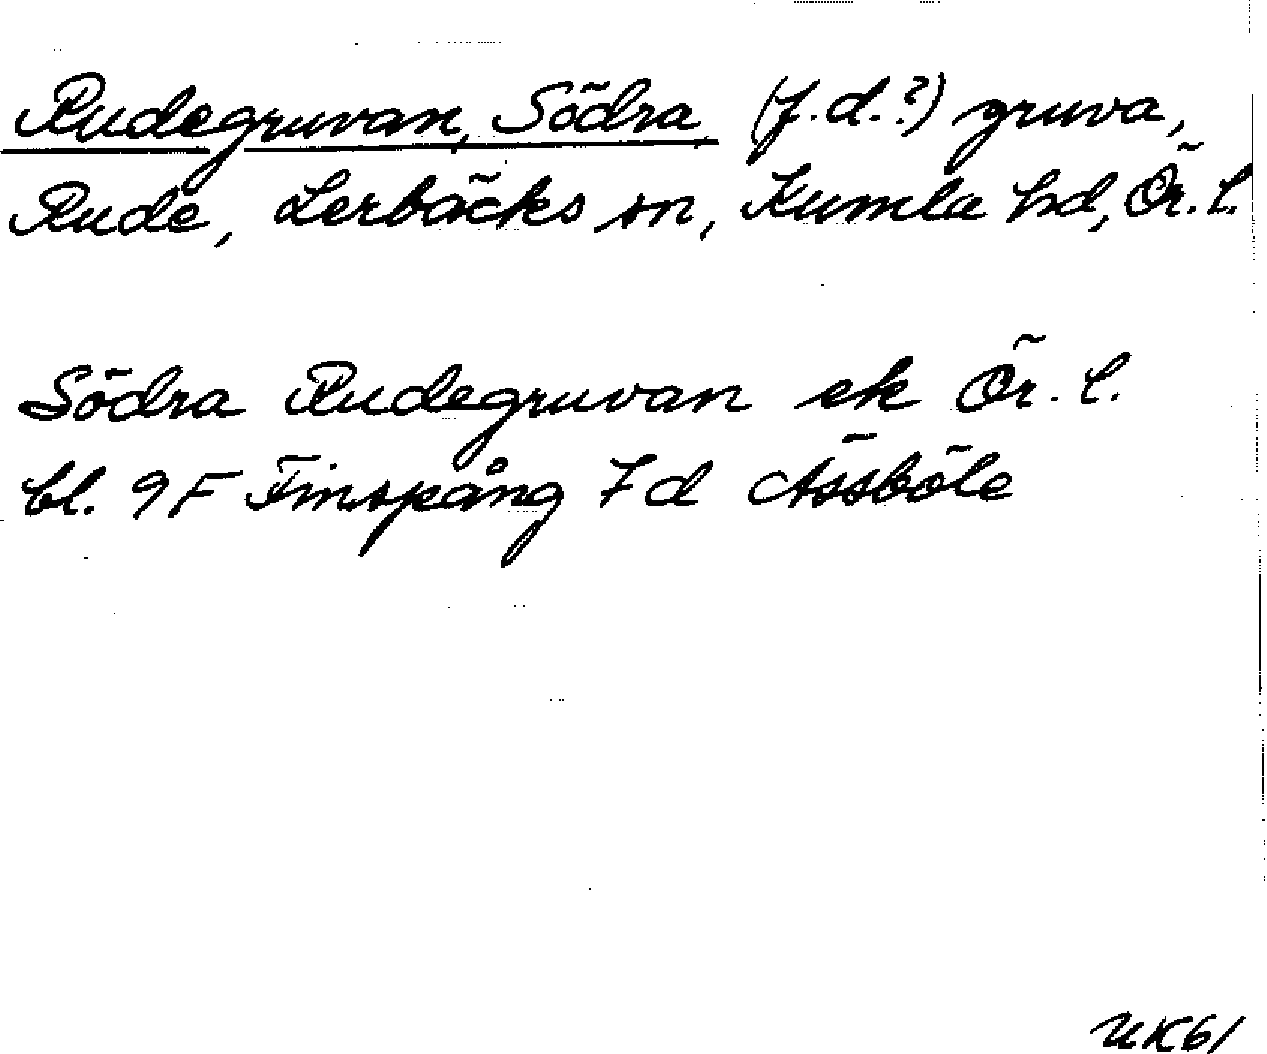 Rudegruvan, Södra, (f.d.?) gruva,
Rude, Lerbäcks sn, Kumla hd, Ör. l.
Södra Rudegruvan ek Ör. l.
bl. 9F Finspång 7d Åssböle
UK61